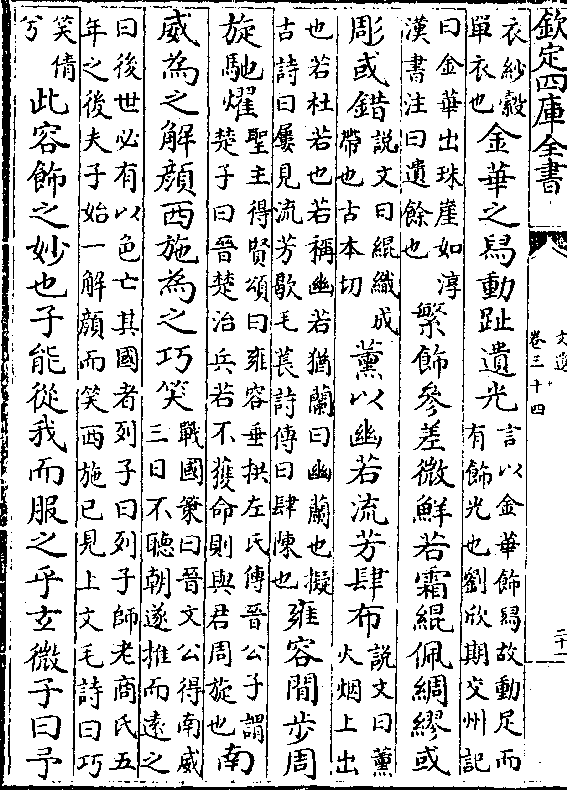 欽定四庫全書
文選
卷三十四
二十一
衣紗縠
單衣也
金華之舄動趾遺光
言以金華飾舄故動足而
有飾光也劉欣期交州記
曰金華出珠崖如淳
漢書注曰遺餘也
繁飾參差微鮮若霜緄佩綢繆或
彫或錯
說文曰緄織成
帶也古本切
薰以幽若流芳肆布
說文曰薰
火烟上出
也若杜若也若稱幽若猶蘭曰幽蘭也擬
古詩曰屢見流芳歇毛萇詩傳曰肆陳也
雍容閒步周
旋馳燿
聖主得賢頌曰雍容垂拱左氏傳晉公子謂
楚子曰晉楚治兵若不獲命則與君周旋也
南
威為之解顏西施為之巧笑
戰國策曰晉文公得南威
三日不聽朝遂推而遠之
曰後世必有以色亡其國者列子曰列子師老商氏五
年之後夫子始一解顏而笑西施已見上文毛詩曰巧
笑倩
兮
此容飾之妙也子能從我而服之乎玄微子曰予